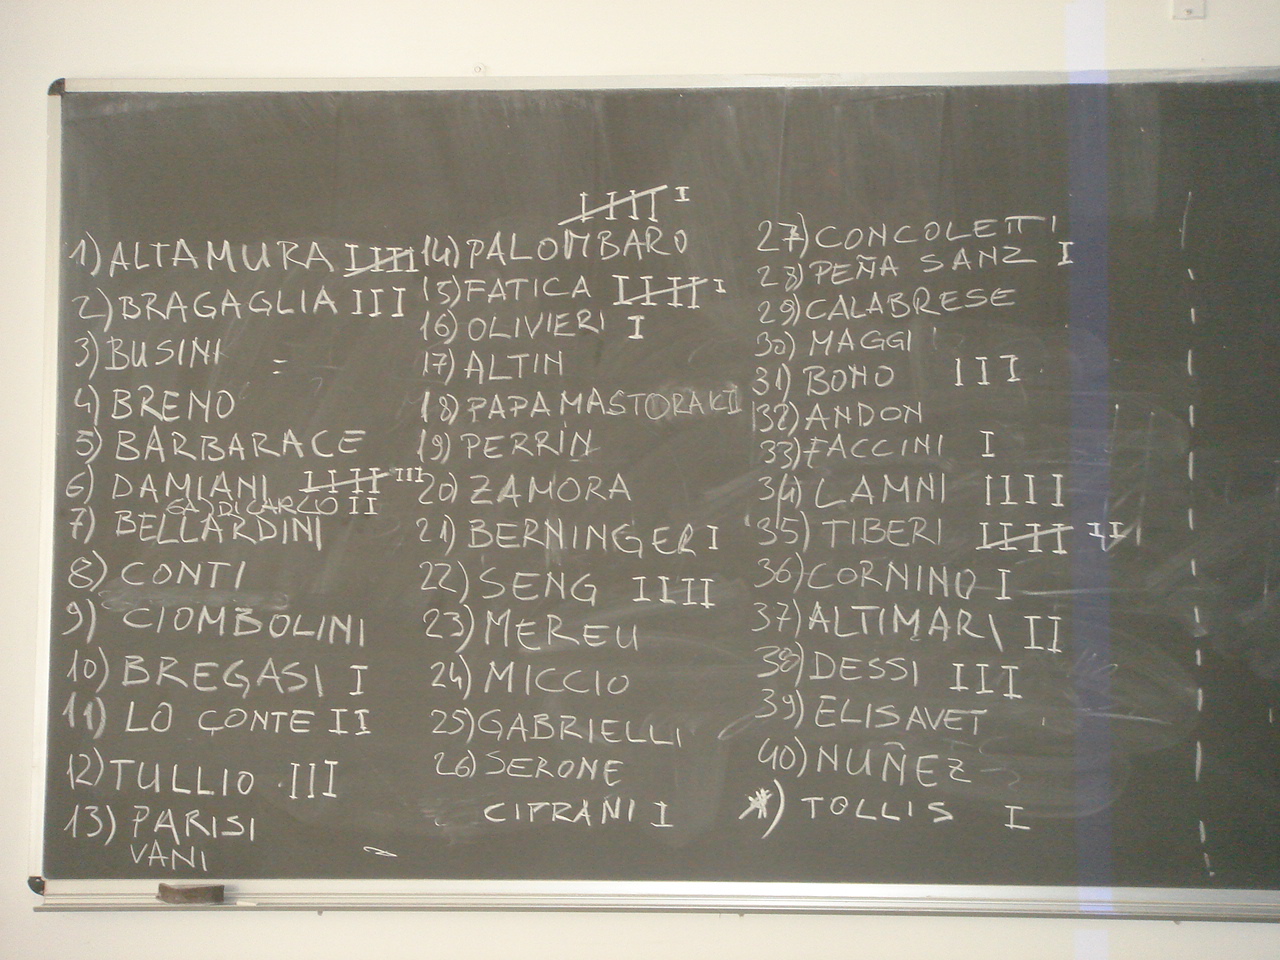 1) ALTAMURA IIIII
2) BRAGAGLIA III
3) BUSINI =
4) BRENO
5) BARBARACE
6) DAMIANI IIIII III
6A) DICARLO II
7) BELLARDINI
8) CONTI
9) CIOMBOLINI
10) BREGASI I
11) LO CONTE II
12) TULLIO III
13) PARISI
VANI
IIIII I
14) PALOMBARO
15) FATICA IIIII I
16) OLIVIERI I
17) ALTIN
18) PAPAMASTORAKI
19) PERRIN
20) ZAMORA
21) BERNINGER I
22) SENG IIII
23) MEREU
24) MICCIO
25) GABRIELLI
26) SERONE
CIPRANI I
27) CONCOLETTI
28) PEÑA SANZ I
29) CALABRESE
30) MAGGI
31) BOMO III
32) ANDON
33) FACCINI I
34) LAMNI IIII
35) TIBERI IIIII II
36) CORNINO I
37) ALTIMARI II
38) DESSI III
39) ELISAVET
40) NUÑEZ
*) TOLLIS I